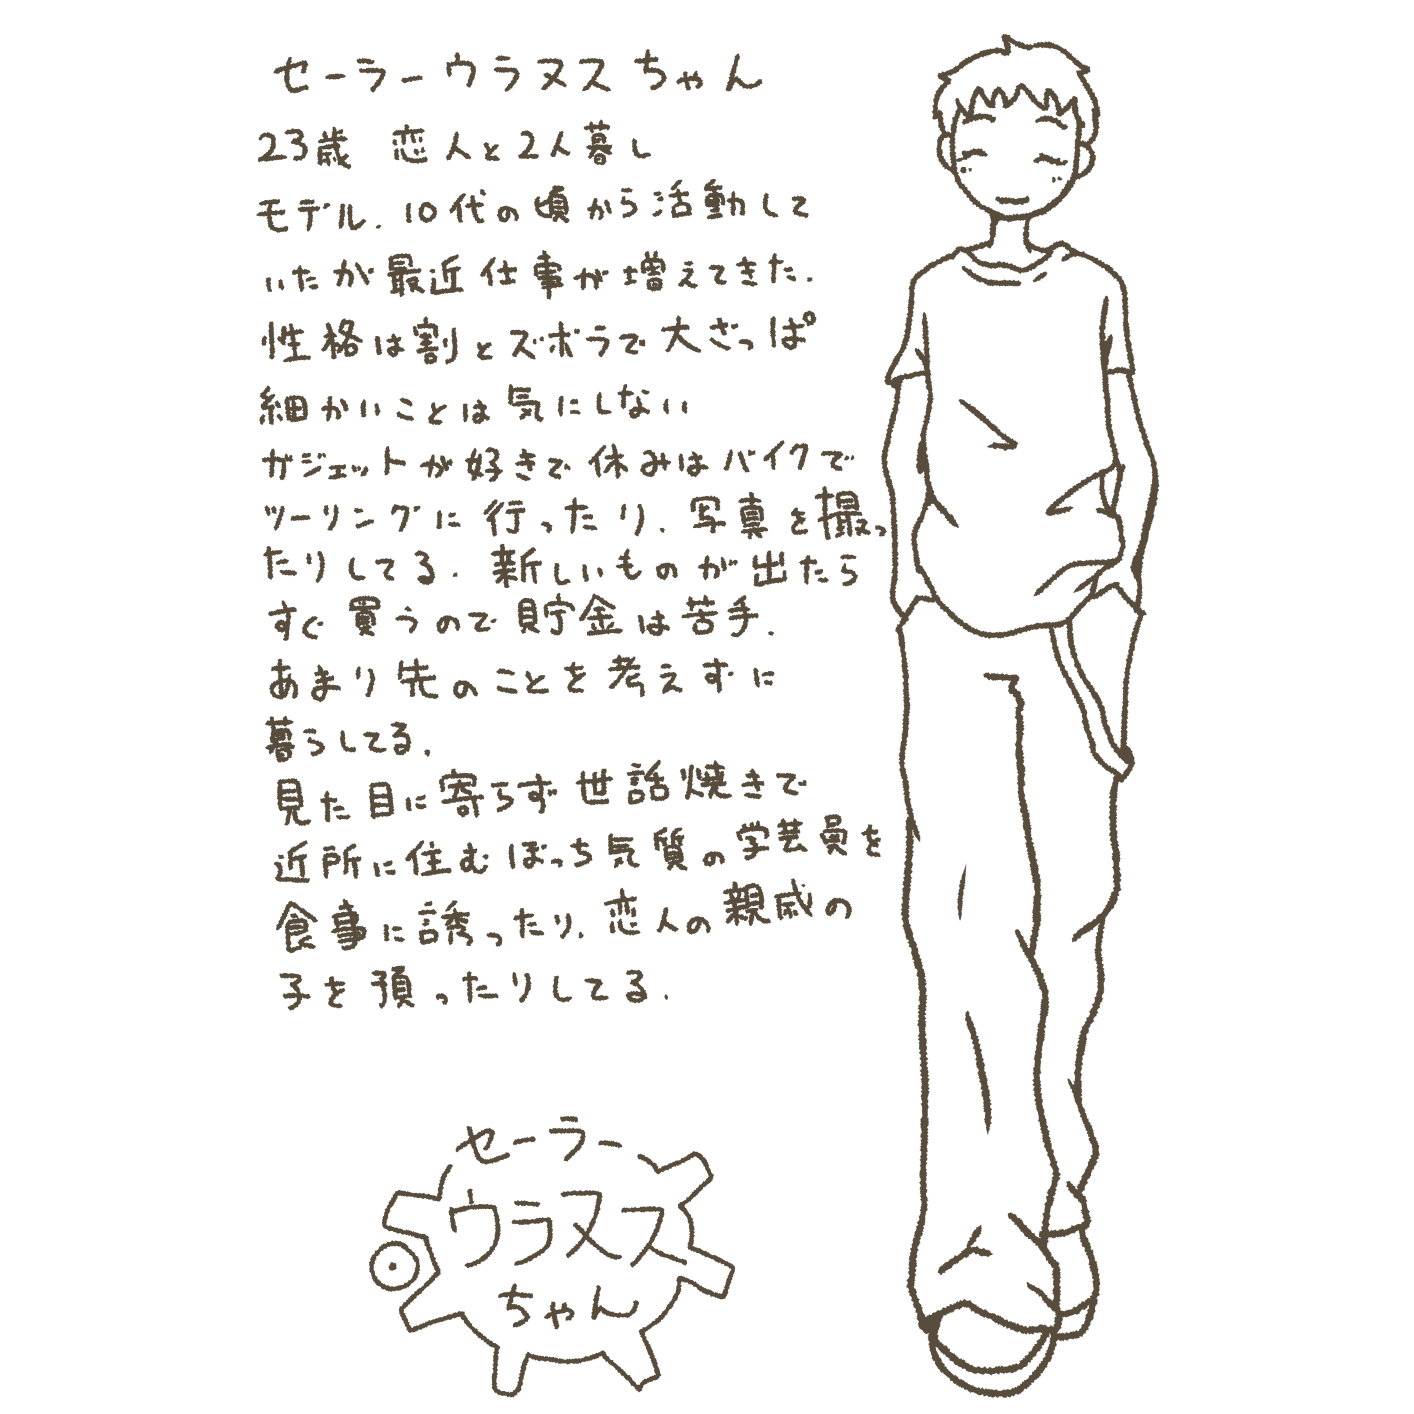 セーラーウラヌスちゃん
23歳 恋人と2人暮し
モデル.10代の頃から活動して
いたが最近仕事が増えてきた.
性格は割とズボラで大ざっぱ
細かいことは気にしない
ガジェットが好きで休みはバイクで
ツーリングに行ったり.写真を撮っ
たりしてる.新しいものが出たら
すぐ買うので貯金は苦手.
あまり先のことを考えずに
暮らしてる.
見た目に寄らず世話焼きで
近所に住むぼっち気質の学芸員を
食事に誘ったり.恋人の親戚の
子を預ったりしてる.
セーラー
ウラヌス
ちゃん